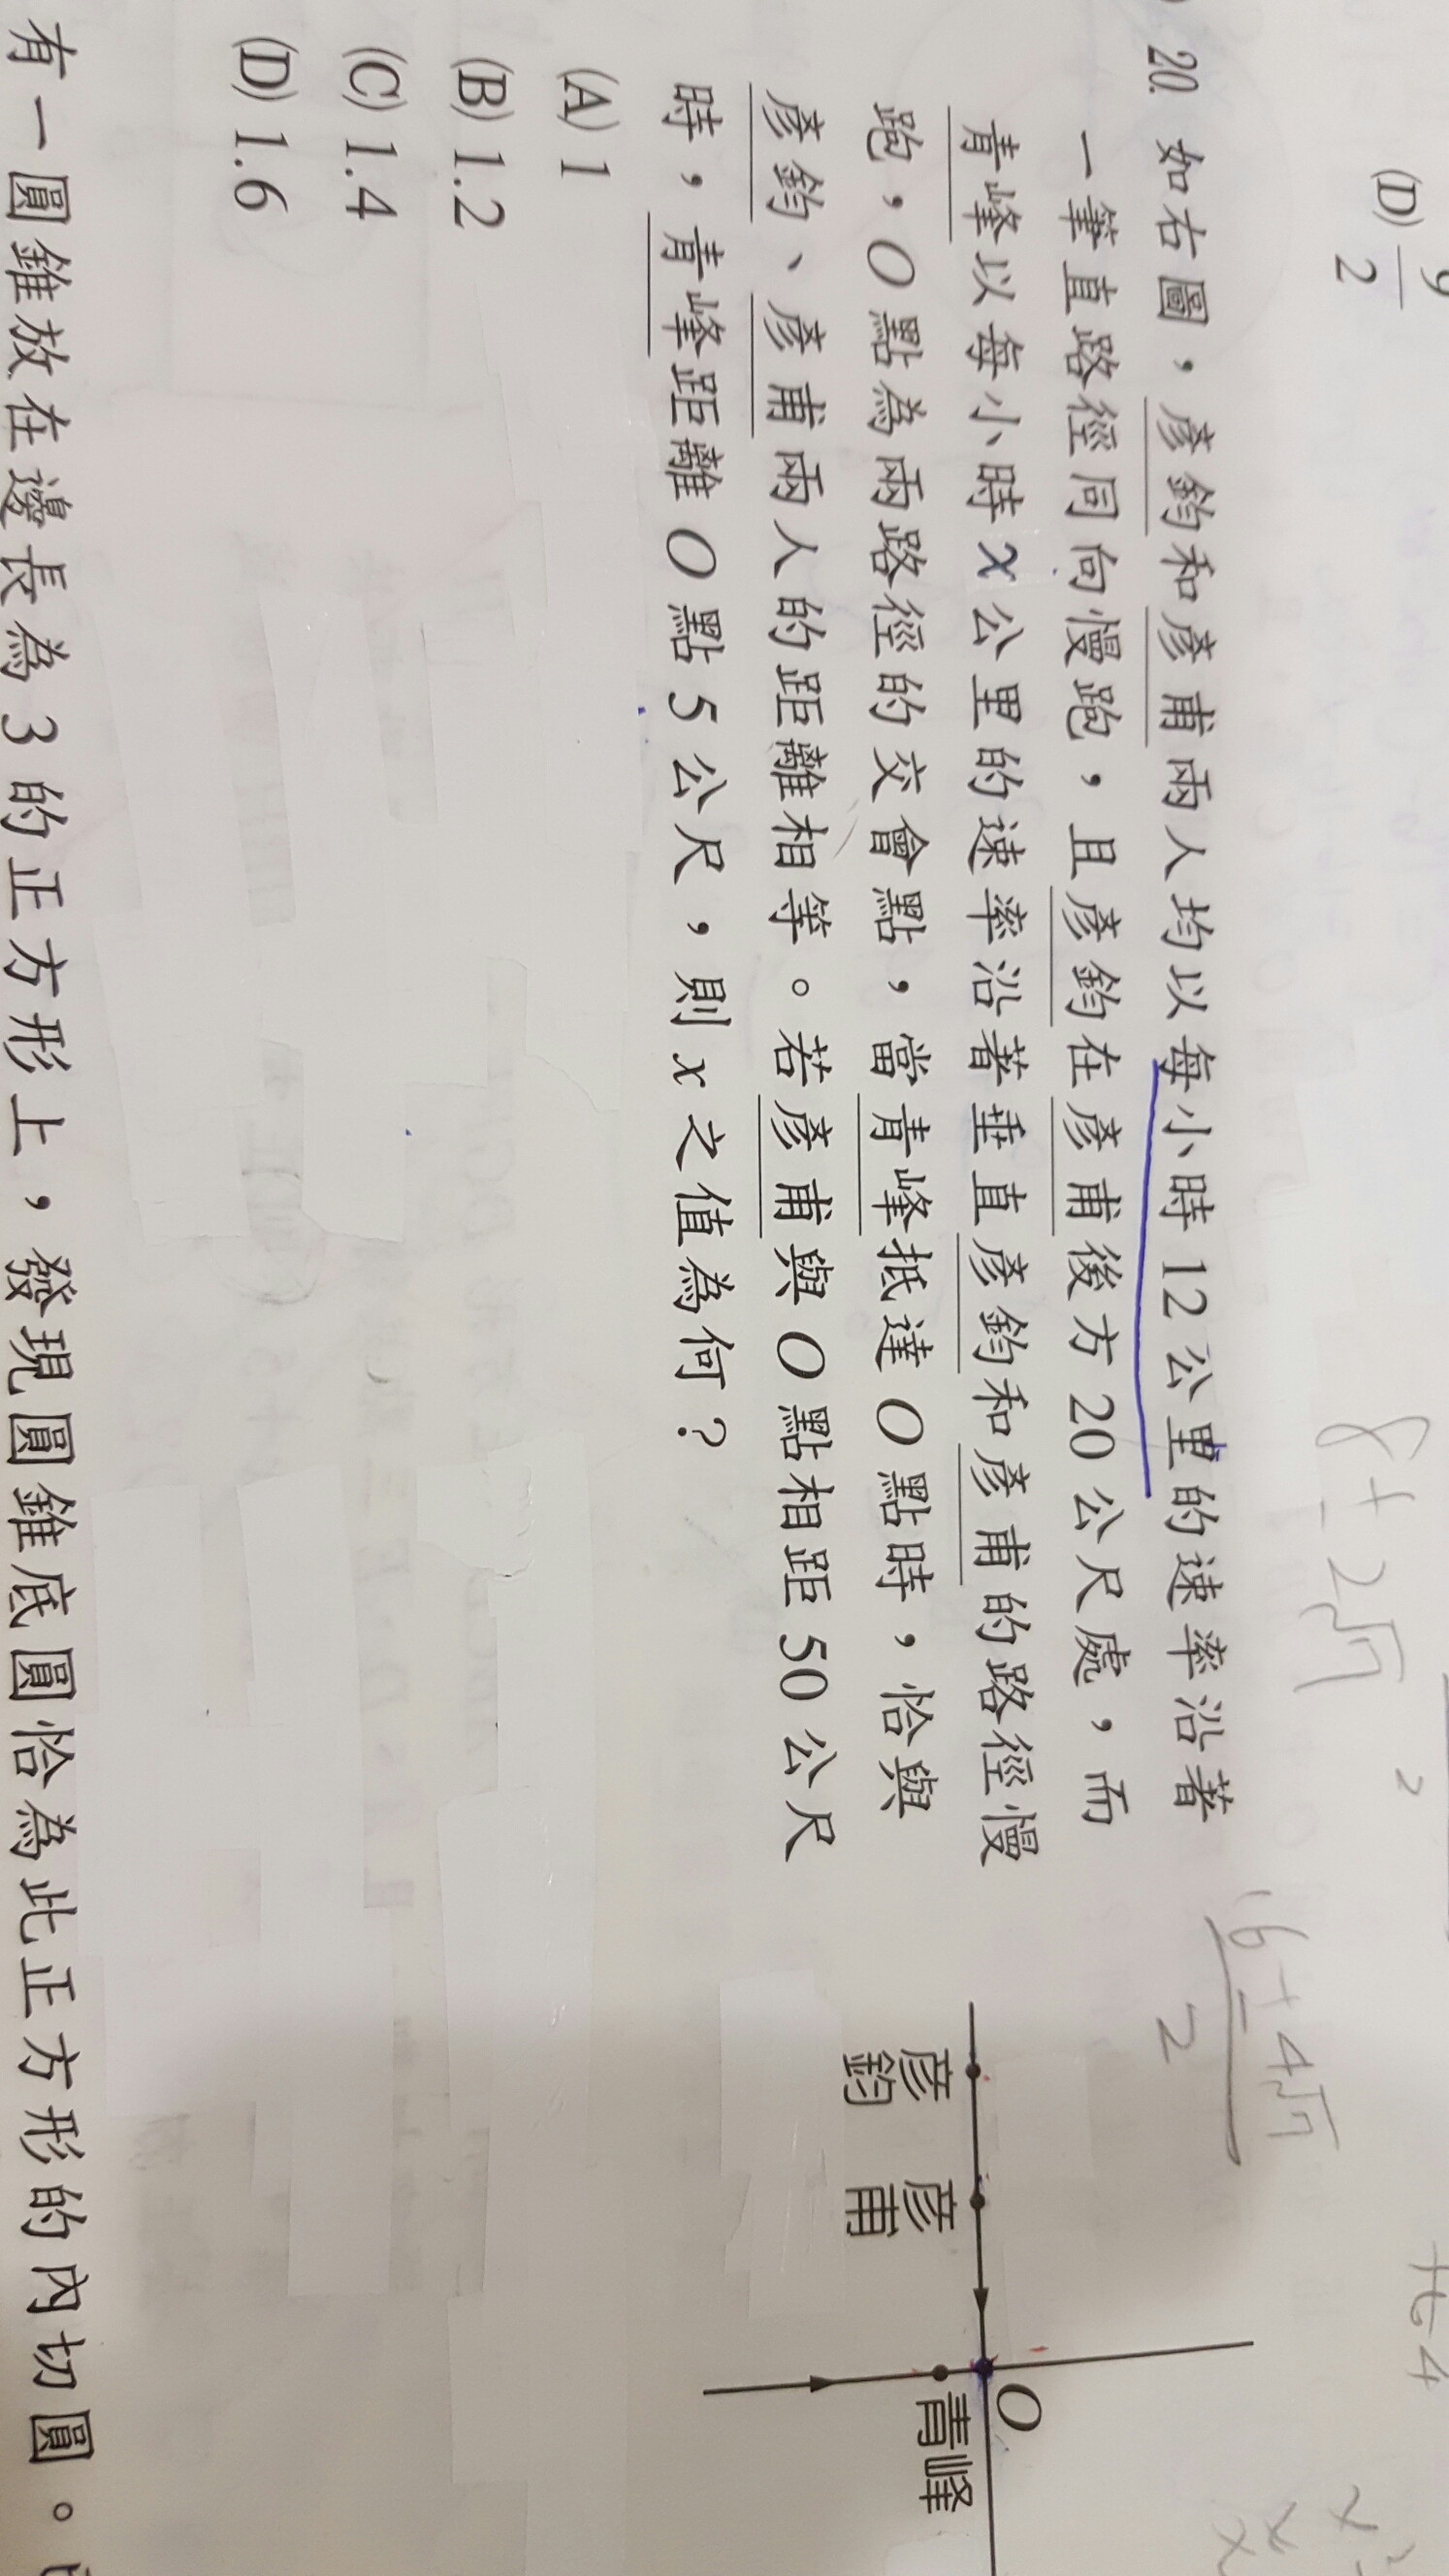 (D) 9/2
20. 如右圖，彥鈞和彥甫兩人均以每小時12公里的速率沿著
一筆直路徑同向慢跑，且彥鈞在彥甫後方20公尺處，而
青峰以每小時x公里的速率沿著垂直彥鈞和彥甫的路徑慢
跑，O點為兩路徑的交會點，當青峰抵達O點時，恰與
彥鈞、彥甫兩人的距離相等。若彥甫與O點相距50公尺
時，青峰距離O點5公尺，則x之值為何？
(A) 1
(B) 1.2
(C) 1.4
(D) 1.6
彥鈞
彥甫
O
青峰
有一圓錐放在邊長為3的正方形上，發現圓錐底圓恰為此正方形的內切圓。
8±2√7
2
16±4√7
2